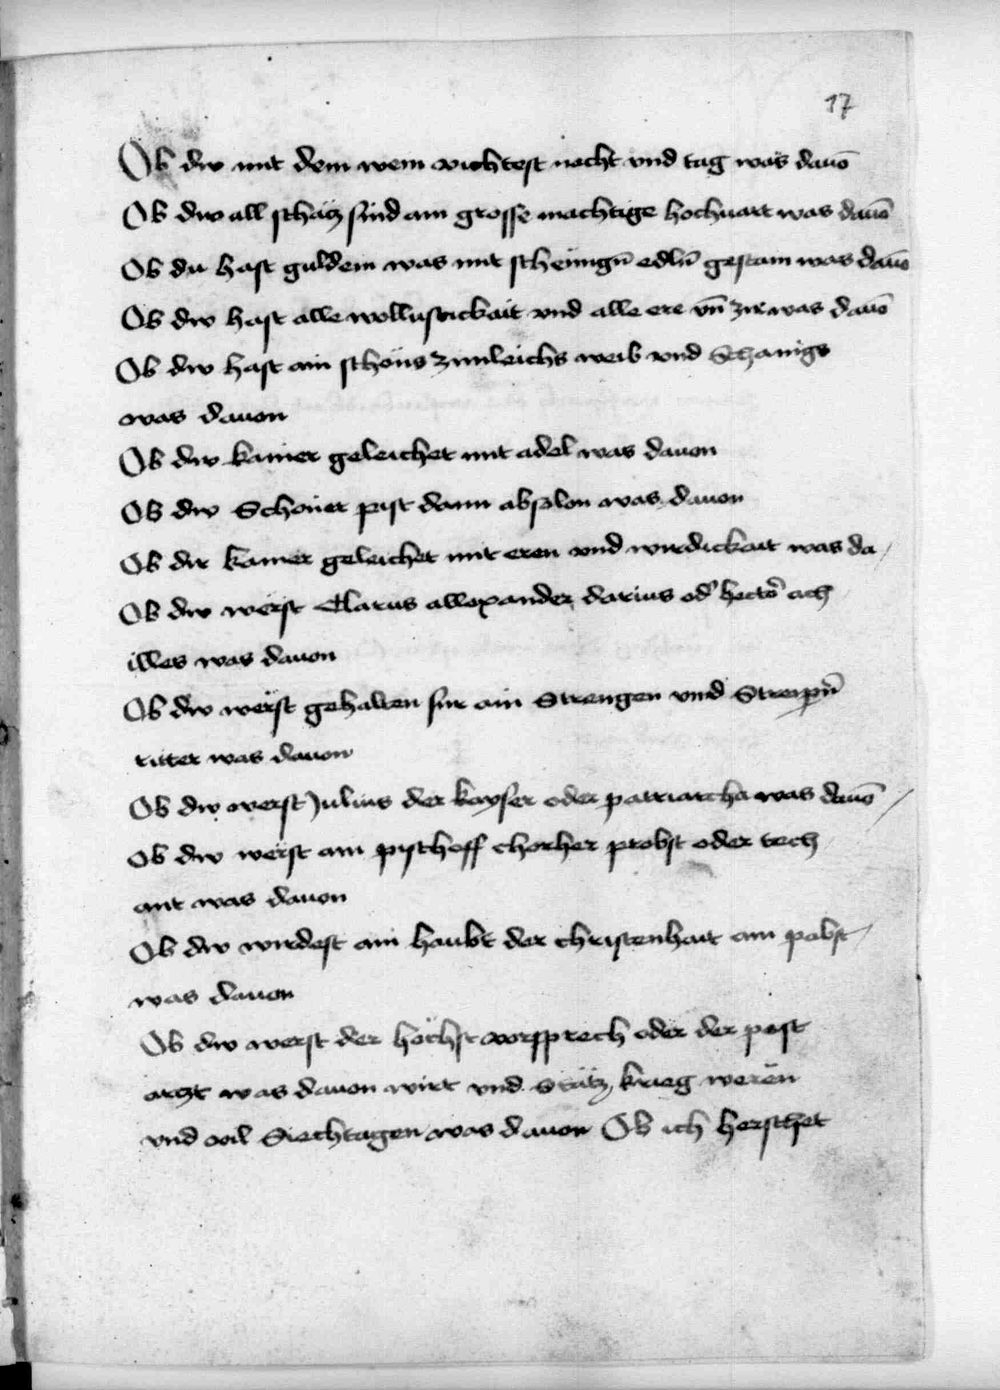 17
Ob dw mit dem wein vichtest nacht vnd tag was dauō
Ob dw all schatz sind ain grosse machtige hochuart was dauō
Ob du hast guldein was mit scheinign̄ edln̄ gestain was dauō
Ob dw hast alle wollustickait vnd alle ere vn̄ zir was dauō
Ob dw hast ain schöns zimleichs weib vnd
was dauon
Ob dir kainer geleichet mit adel was dauon
Ob dw Schoner pist dann absolon was dauon
Ob dir kainer geleichet mit eren vnd wirdickait was da/
Ob dw werst Clarus allexander darius od' hector ach
illes was dauon
Ob dw werst gehalten fur ain Strengen vnd
ritter was dauon
Ob dw werst Julius der kayser oder patriarcha was dauō
Ob dw werst ain pischoff chorher probst oder tech
ant was dauon
Ob dw wirdest ain haubt der christenhait ain pabst
was dauon
Ob dw werst der höchst vorsprech oder der pest
arczt was dauon wirt vnd krieg weren
vnd vil Siechtagen was dauon Ob ich herschet